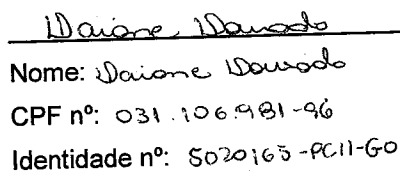 Daiane Dourado
Nome: Daiane Dourado
CPF nº: 031.106.981-96
Identidade nº: 5020165-PCII-GO